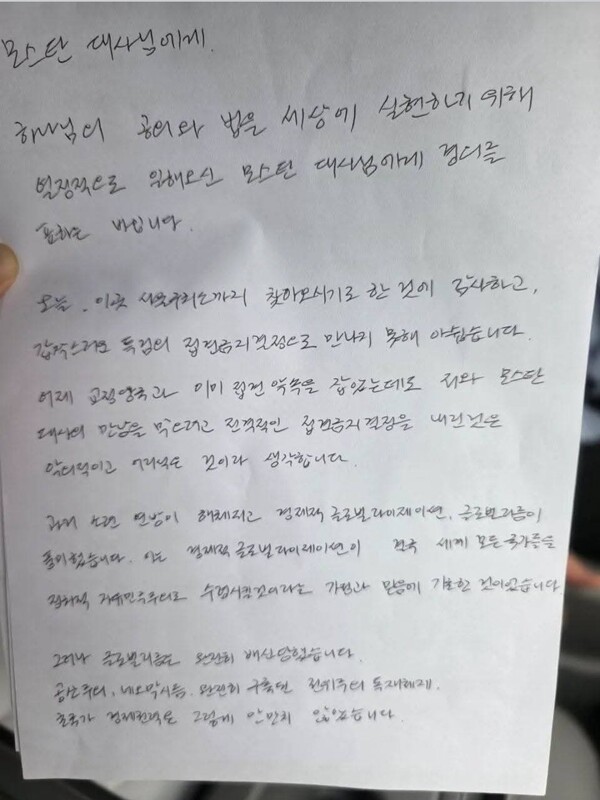 모스탄 대사님에게.
하나님의 공의와 법을 세상에 실현하기 위해
열정적으로 일해오신 모스탄 대사님에게 경의를
표하는 바입니다.
오늘, 이곳 서울구치소까지 찾아오시기로 한 것에 감사하고,
갑작스러운 특검의 접견금지결정으로 만나지 못해 아쉽습니다.
어제 교정당국과 이미 접견 약속을 잡았는데도 저와 모스탄
대사의 만남을 막으려고 전격적인 접견금지결정을 내린것은
악의적이고 어리석은 것이라 생각합니다.
과거 소련 연방이 해체되고 경제적 글로벌라이제이션, 글로벌리즘이
풍미했습니다. 이는 경제적 글로벌라이제이션이 전 세계 모든 국가들을
정치적 자유민주주의로 수렴시킬것이라는 가정과 믿음에 기초한 것이었습니다.
그러나 글로벌리즘은 완전히 배신당했습니다.
공산주의, 네오막시즘, 완전히 구축된 전체주의 독재체제,
초국가 경제권력은 그렇게 만만치 않았습니다.